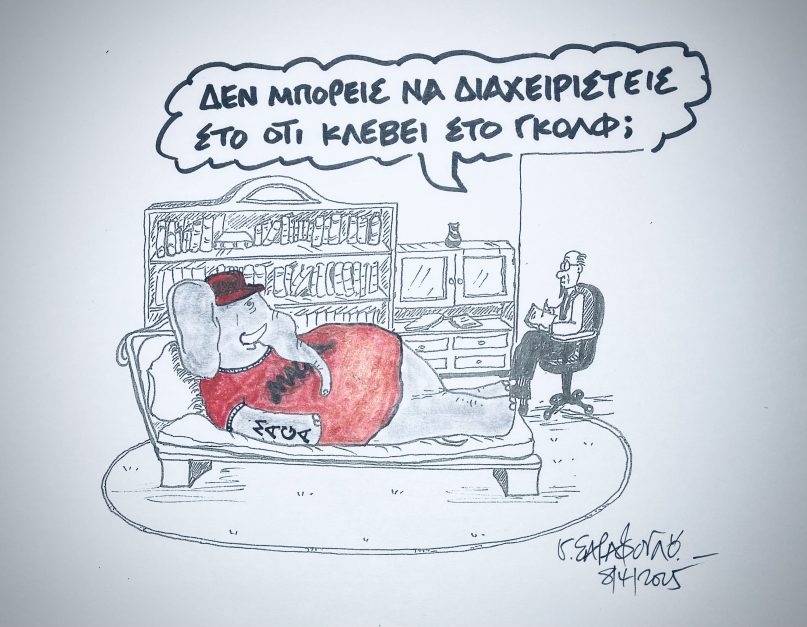 ΔΕΝ ΜΠΟΡΕΙΣ ΝΑ ΔΙΑΧΕΙΡΙΣΤΕΙΣ
ΣΤΟ ΟΤΙ ΚΛΕΒΕΙ ΣΤΟ ΓΚΟΛΦ;
MAGA
8/4/2025